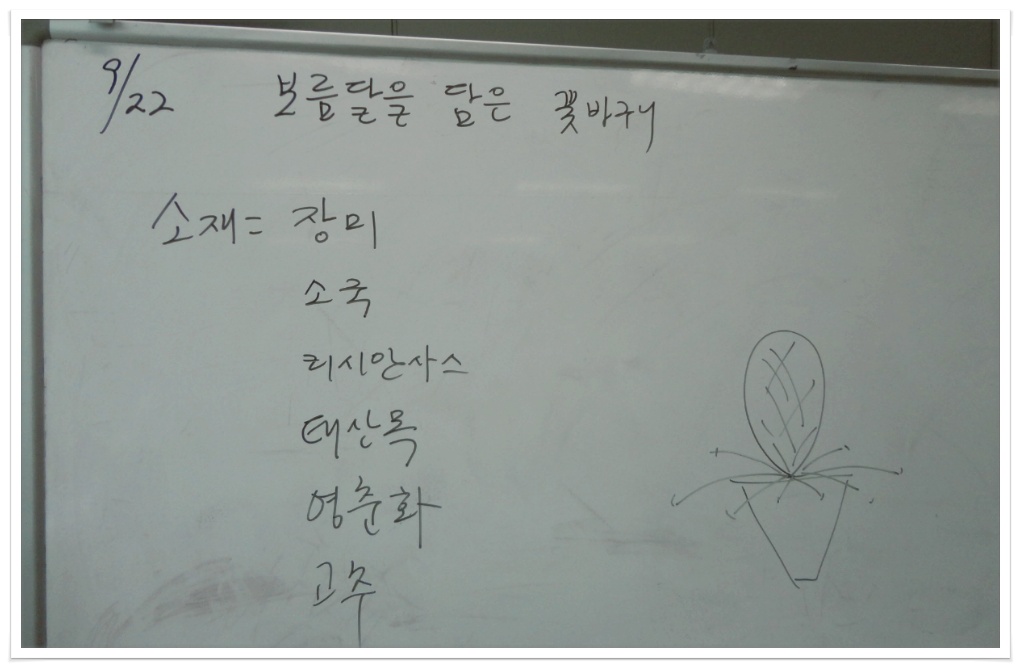 9/22 보름달을 담은 꽃바구니
소재= 장미
소국
리시안사스
태산목
영춘화
고추